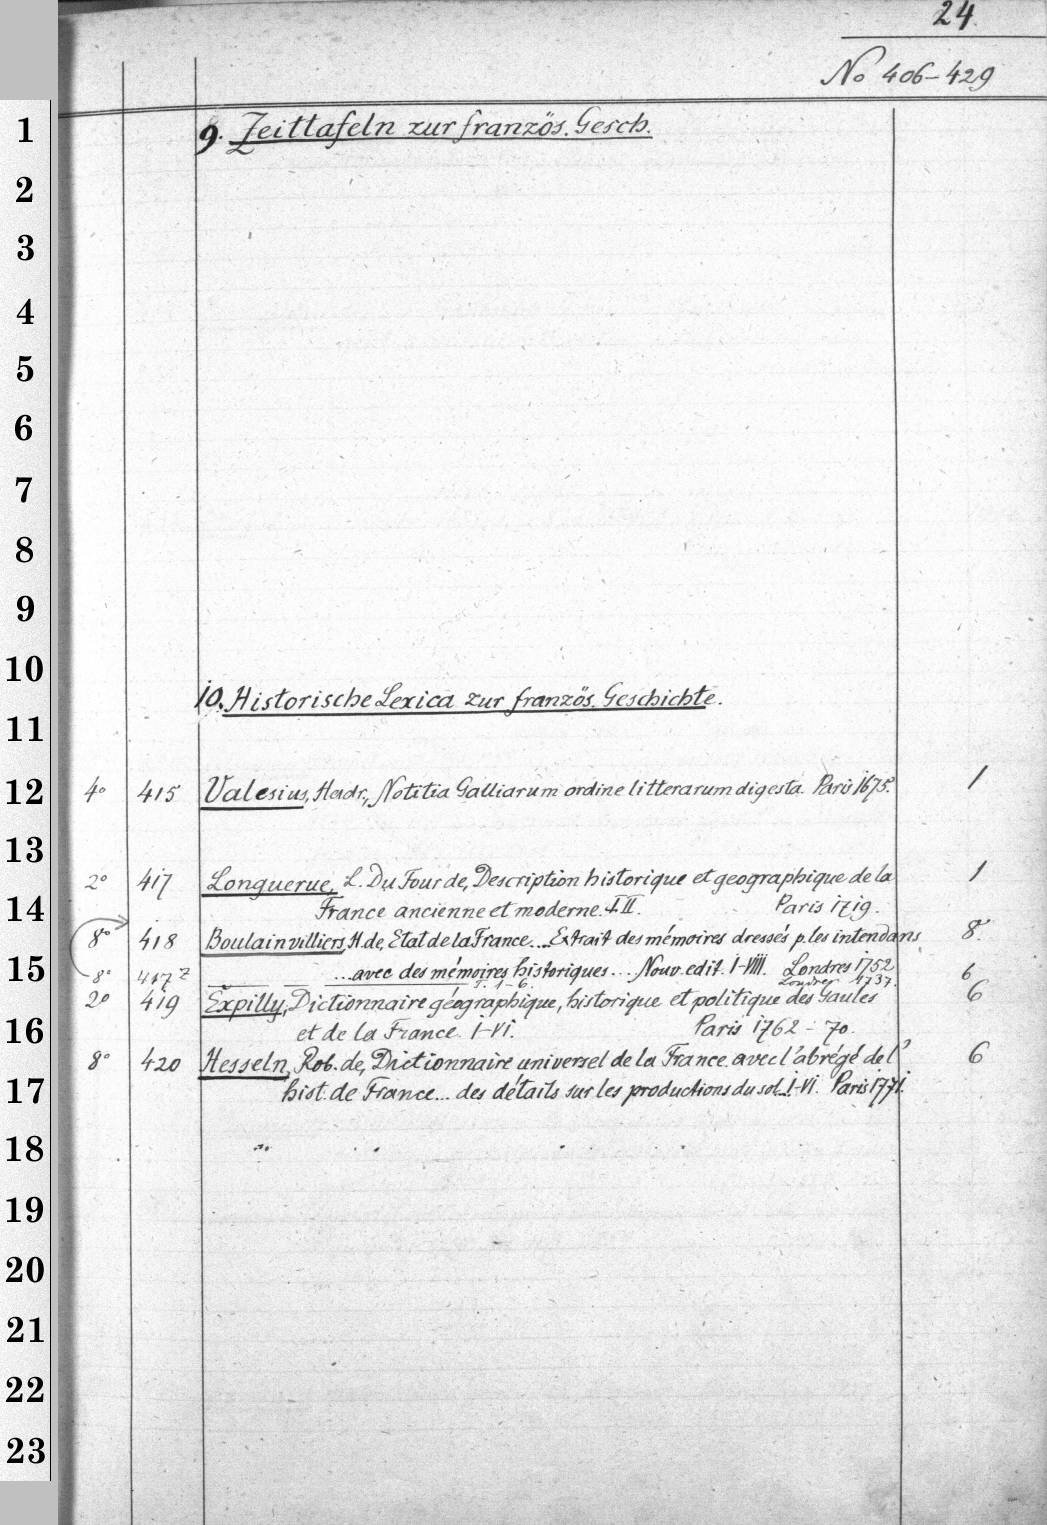 24
No 406-429
1
9. Zeittafeln zur französ. Gesch.
2
3
4
5
6
7
8
9
10
10. Historische Lexica zur französ. Geschichte.
11
12
4° 415 Valesius, Hadr., Notitia Galliarum ordine litterarum digesta. Paris 1675. 1
13
2° 417 Longuerue, L. Du Four de, Description historique et geographique de la 1
14
France ancienne et moderne. I.II. Paris 1719.
8° 418 Boulainvilliers, H. de, Etat de la France... Extrait des mémoires dressés p. les intendans 8.
15
...avec des mémoires historiques... Nouv. edit. I-VIII. Londres 1752
8° 417z T. 1-6. Londres 1737. 6
2° 419 Expilly, Dictionnaire géographique, historique et politique des Gaules 6
16
et de la France. I-VI. Paris 1762-70.
8° 420 Hesseln, Rob. de, Dictionnaire universel de la France avec l'abrégé de l' 6
17
hist. de France... des détails sur les productions du sol... I-VI. Paris 1771.
18
19
20
21
22
23